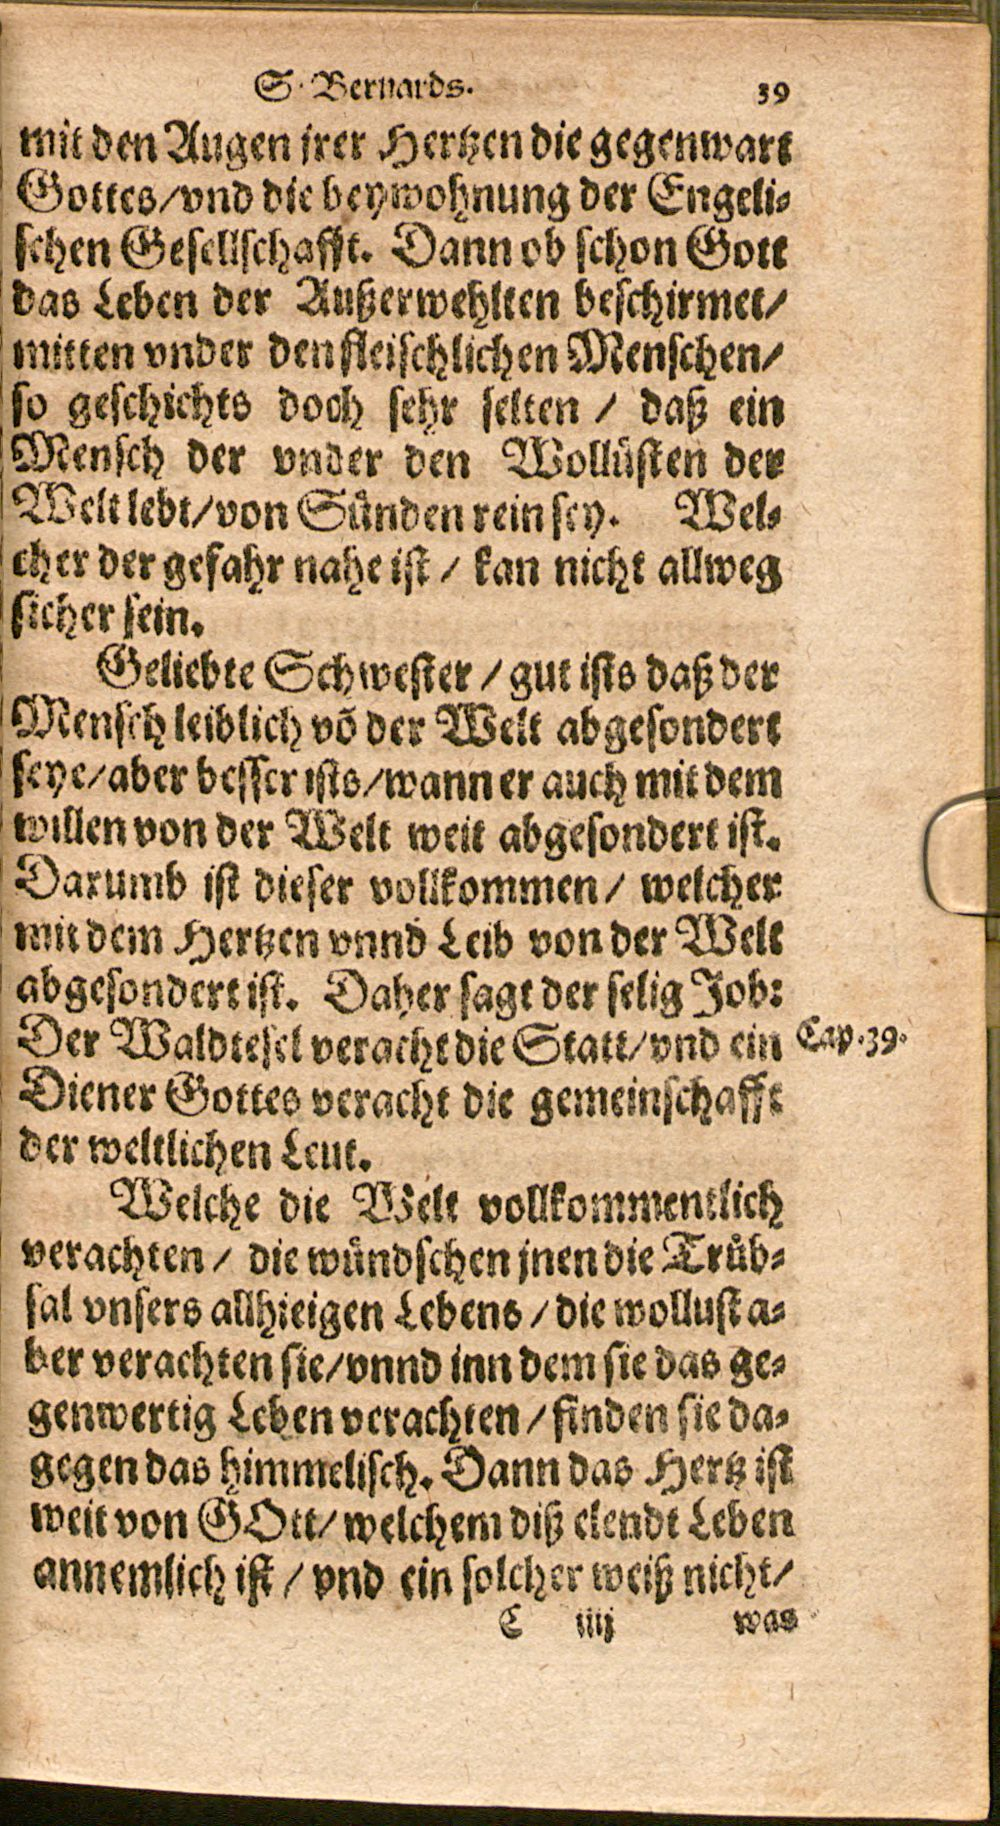 S. Bernards. 39
mit den Augen jrer Hertzen die gegenwart
Gottes/vnd die beywohnung der Engeli-
schen Gesellschafft. Dann ob schon Gott
das Leben der Außerwehlten beschirmet/
mitten vnder den fleischlichen Menschen/
so geschichts doch sehr selten / daß ein
Mensch der vnder den Wollüsten der
Welt lebt/von Sünden rein sey. Wel-
cher der gefahr nahe ist / kan nicht allweg
sicher sein.
Geliebte Schwester / gut ists daß der
Mensch leiblich võ der Welt abgesondert
seye/aber besser ists/wann er auch mit dem
willen von der Welt weit abgesondert ist.
Darumb ist dieser vollkommen/ welcher
mit dem Hertzen vnnd Leib von der Welt
abgesondert ist. Daher sagt der selig Job:
Der Waldtesel veracht die Statt/vnd ein Cap. 39.
Diener Gottes veracht die gemeinschafft
der weltlichen Leut.
Welche die Welt vollkommentlich
verachten / die wündschen jnen die Trüb-
sal vnsers allhieigen Lebens / die wollust a-
ber verachten sie/vnnd inn dem sie das ge-
genwertig Leben verachten / finden sie da-
gegen das himmelisch. Dann das Hertz ist
weit von GOtt/ welchem diß elendt Leben
annemlich ist / vnd ein solcher weiß nicht/
C iiij was